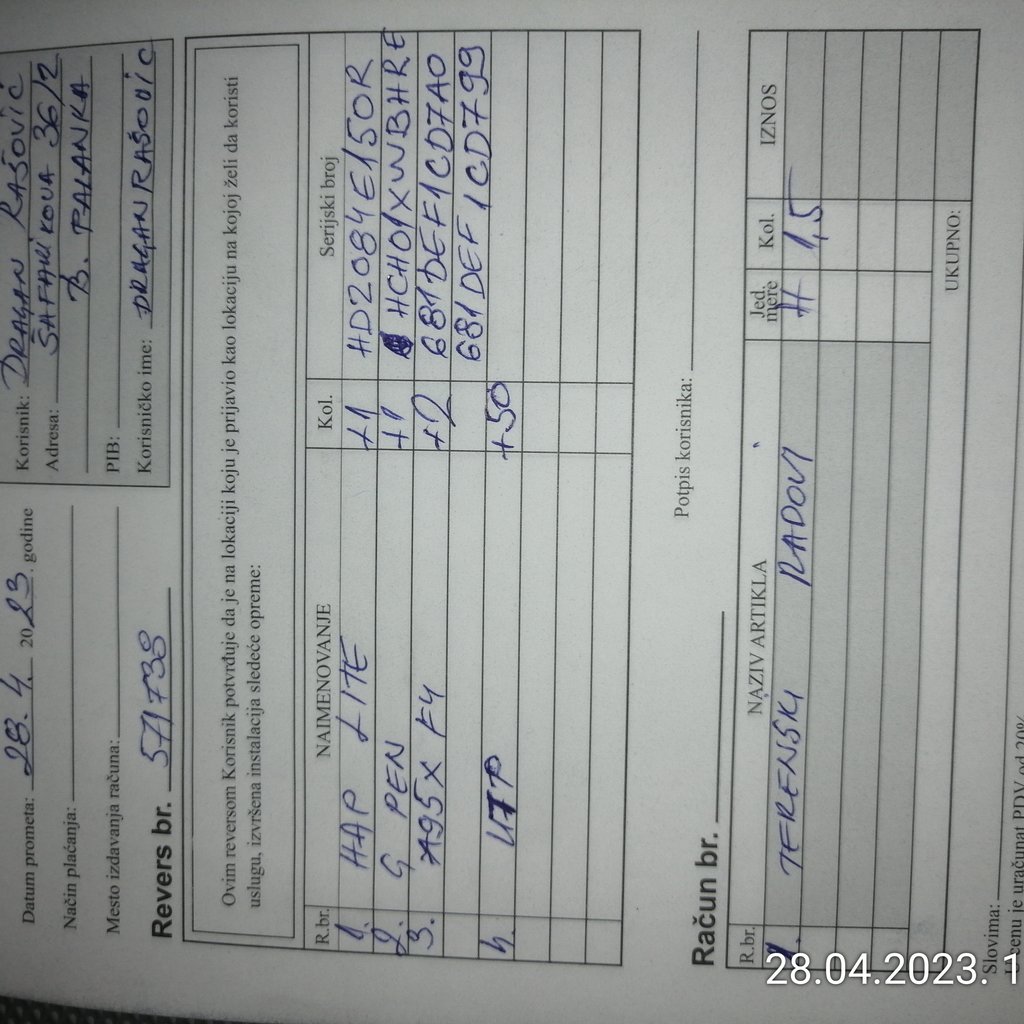 Datum prometa: 28. 4. 2023. godine
Način plaćanja:
Mesto izdavanja računa:
Revers br. 571738
Korisnik: DRAGAN RAŠOVIĆ
Adresa: ŠAFARIKOVA 36/2
B. PALANKA
PIB:
Korisničko ime: DRAGANRAŠOVIĆ
Ovim reversom Korisnik potvrđuje da je na lokaciji koju je prijavio kao lokaciju na kojoj želi da koristi
uslugu, izvršena instalacija sledeće opreme:
R.br. NAIMENOVANJE Kol. Serijski broj
1. HAP LITE +1 HD2084E150R
2. G PEN +1 HCH01XWBHRE
3. A95X F4 +2 681DEF1CD7A0
681DEF1CD799
4. UTP +50
Potpis korisnika:
Račun br.
R.br. NAZIV ARTIKLA Jed. mere Kol. IZNOS
1. TERENSKI RADOVI H 1,5
UKUPNO:
Slovima:
U cenu je uračunat PDV od 20%
28.04.2023. 1